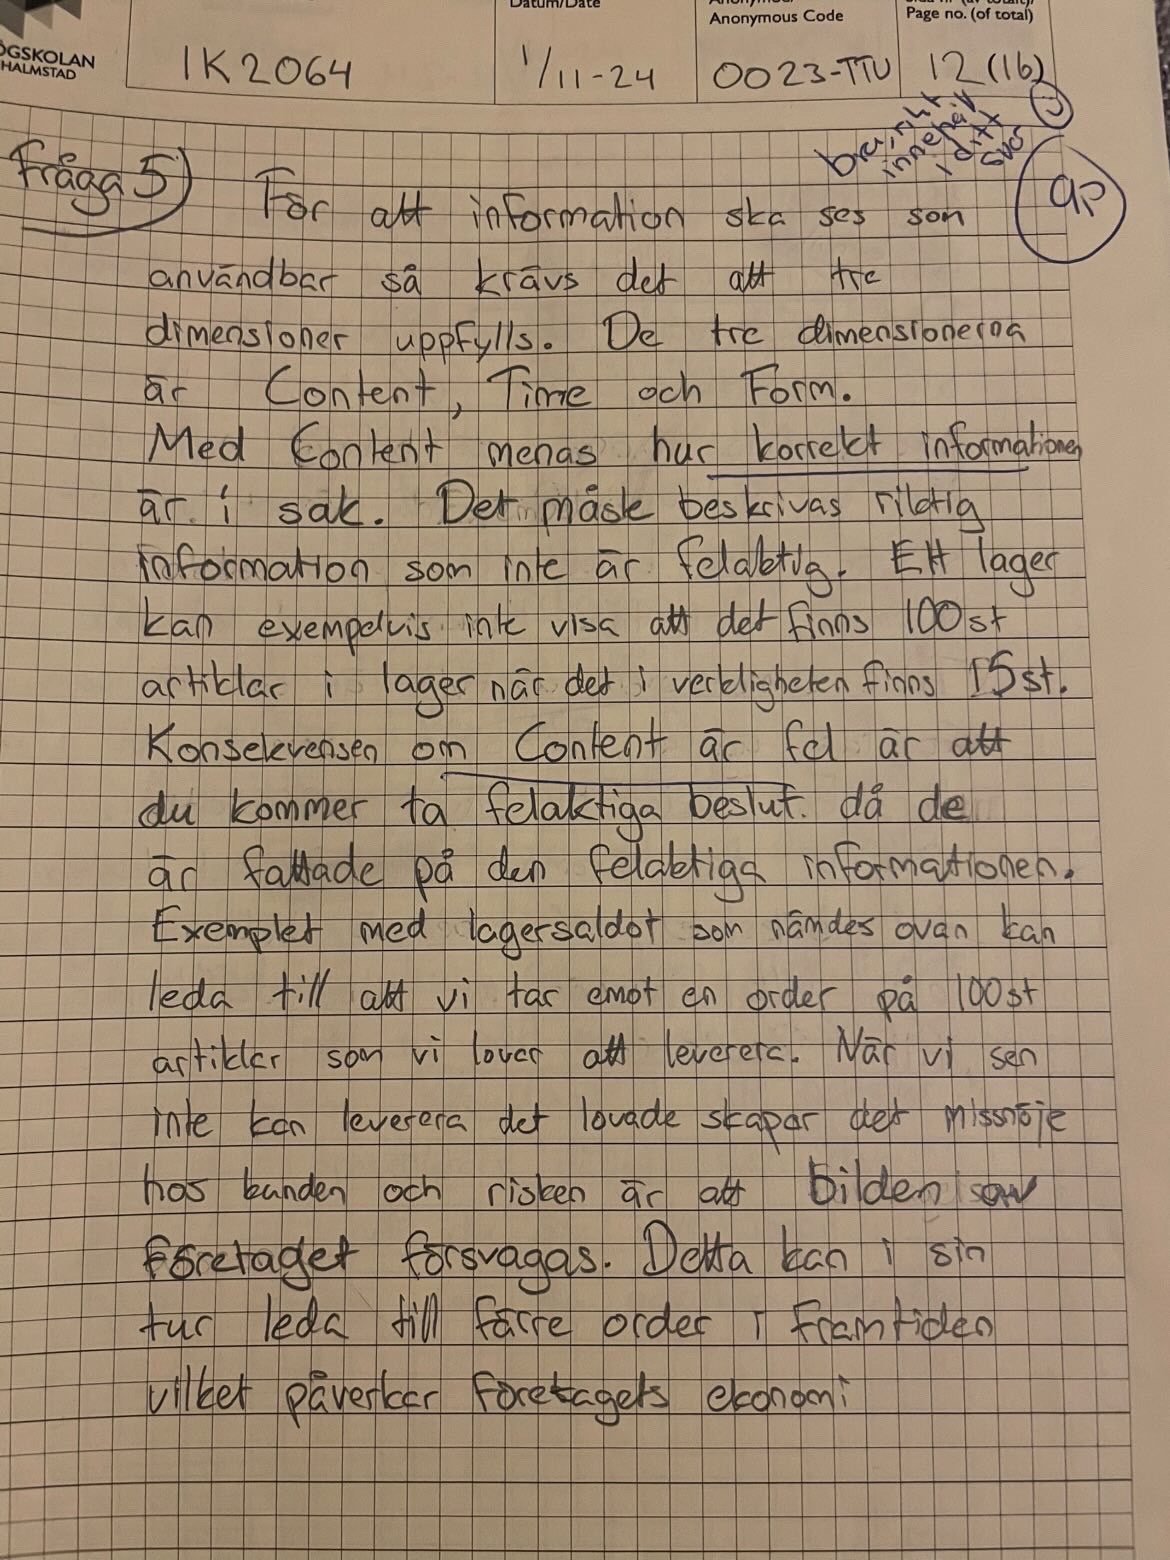 Datum/Date
Anonymous Code
Page no. (of total)
ÖGSKOLAN
HALMSTAD
IK2064
1/11-24
0023-TTU
12 (16)
bra, rikt
innehåll
i ditt
svar
9p
Fråga 5)
För att information ska ses som
användbar så krävs det att tre
dimensioner uppfylls. De tre dimensionerna
är Content, Time och Form.
Med Content menas hur korrekt informationen
är i sak. Det måste beskrivas riktig
information som inte är felaktig. Ett lager
kan exempelvis inte visa att det finns 100st
artiklar i lager när det i verkligheten finns 15st.
Konsekvensen om Content är fel är att
du kommer ta felaktiga beslut då de
är fattade på den felaktiga informationen.
Exemplet med lagersaldot som nämdes ovan kan
leda till att vi tar emot en order på 100st
artiklar som vi lovar att leverera. När vi sen
inte kan leverera det lovade skapar det missnöje
hos kunden och risken är att bilden av
företaget försvagas. Detta kan i sin
tur leda till färre order i framtiden
vilket påverkar företagets ekonomi